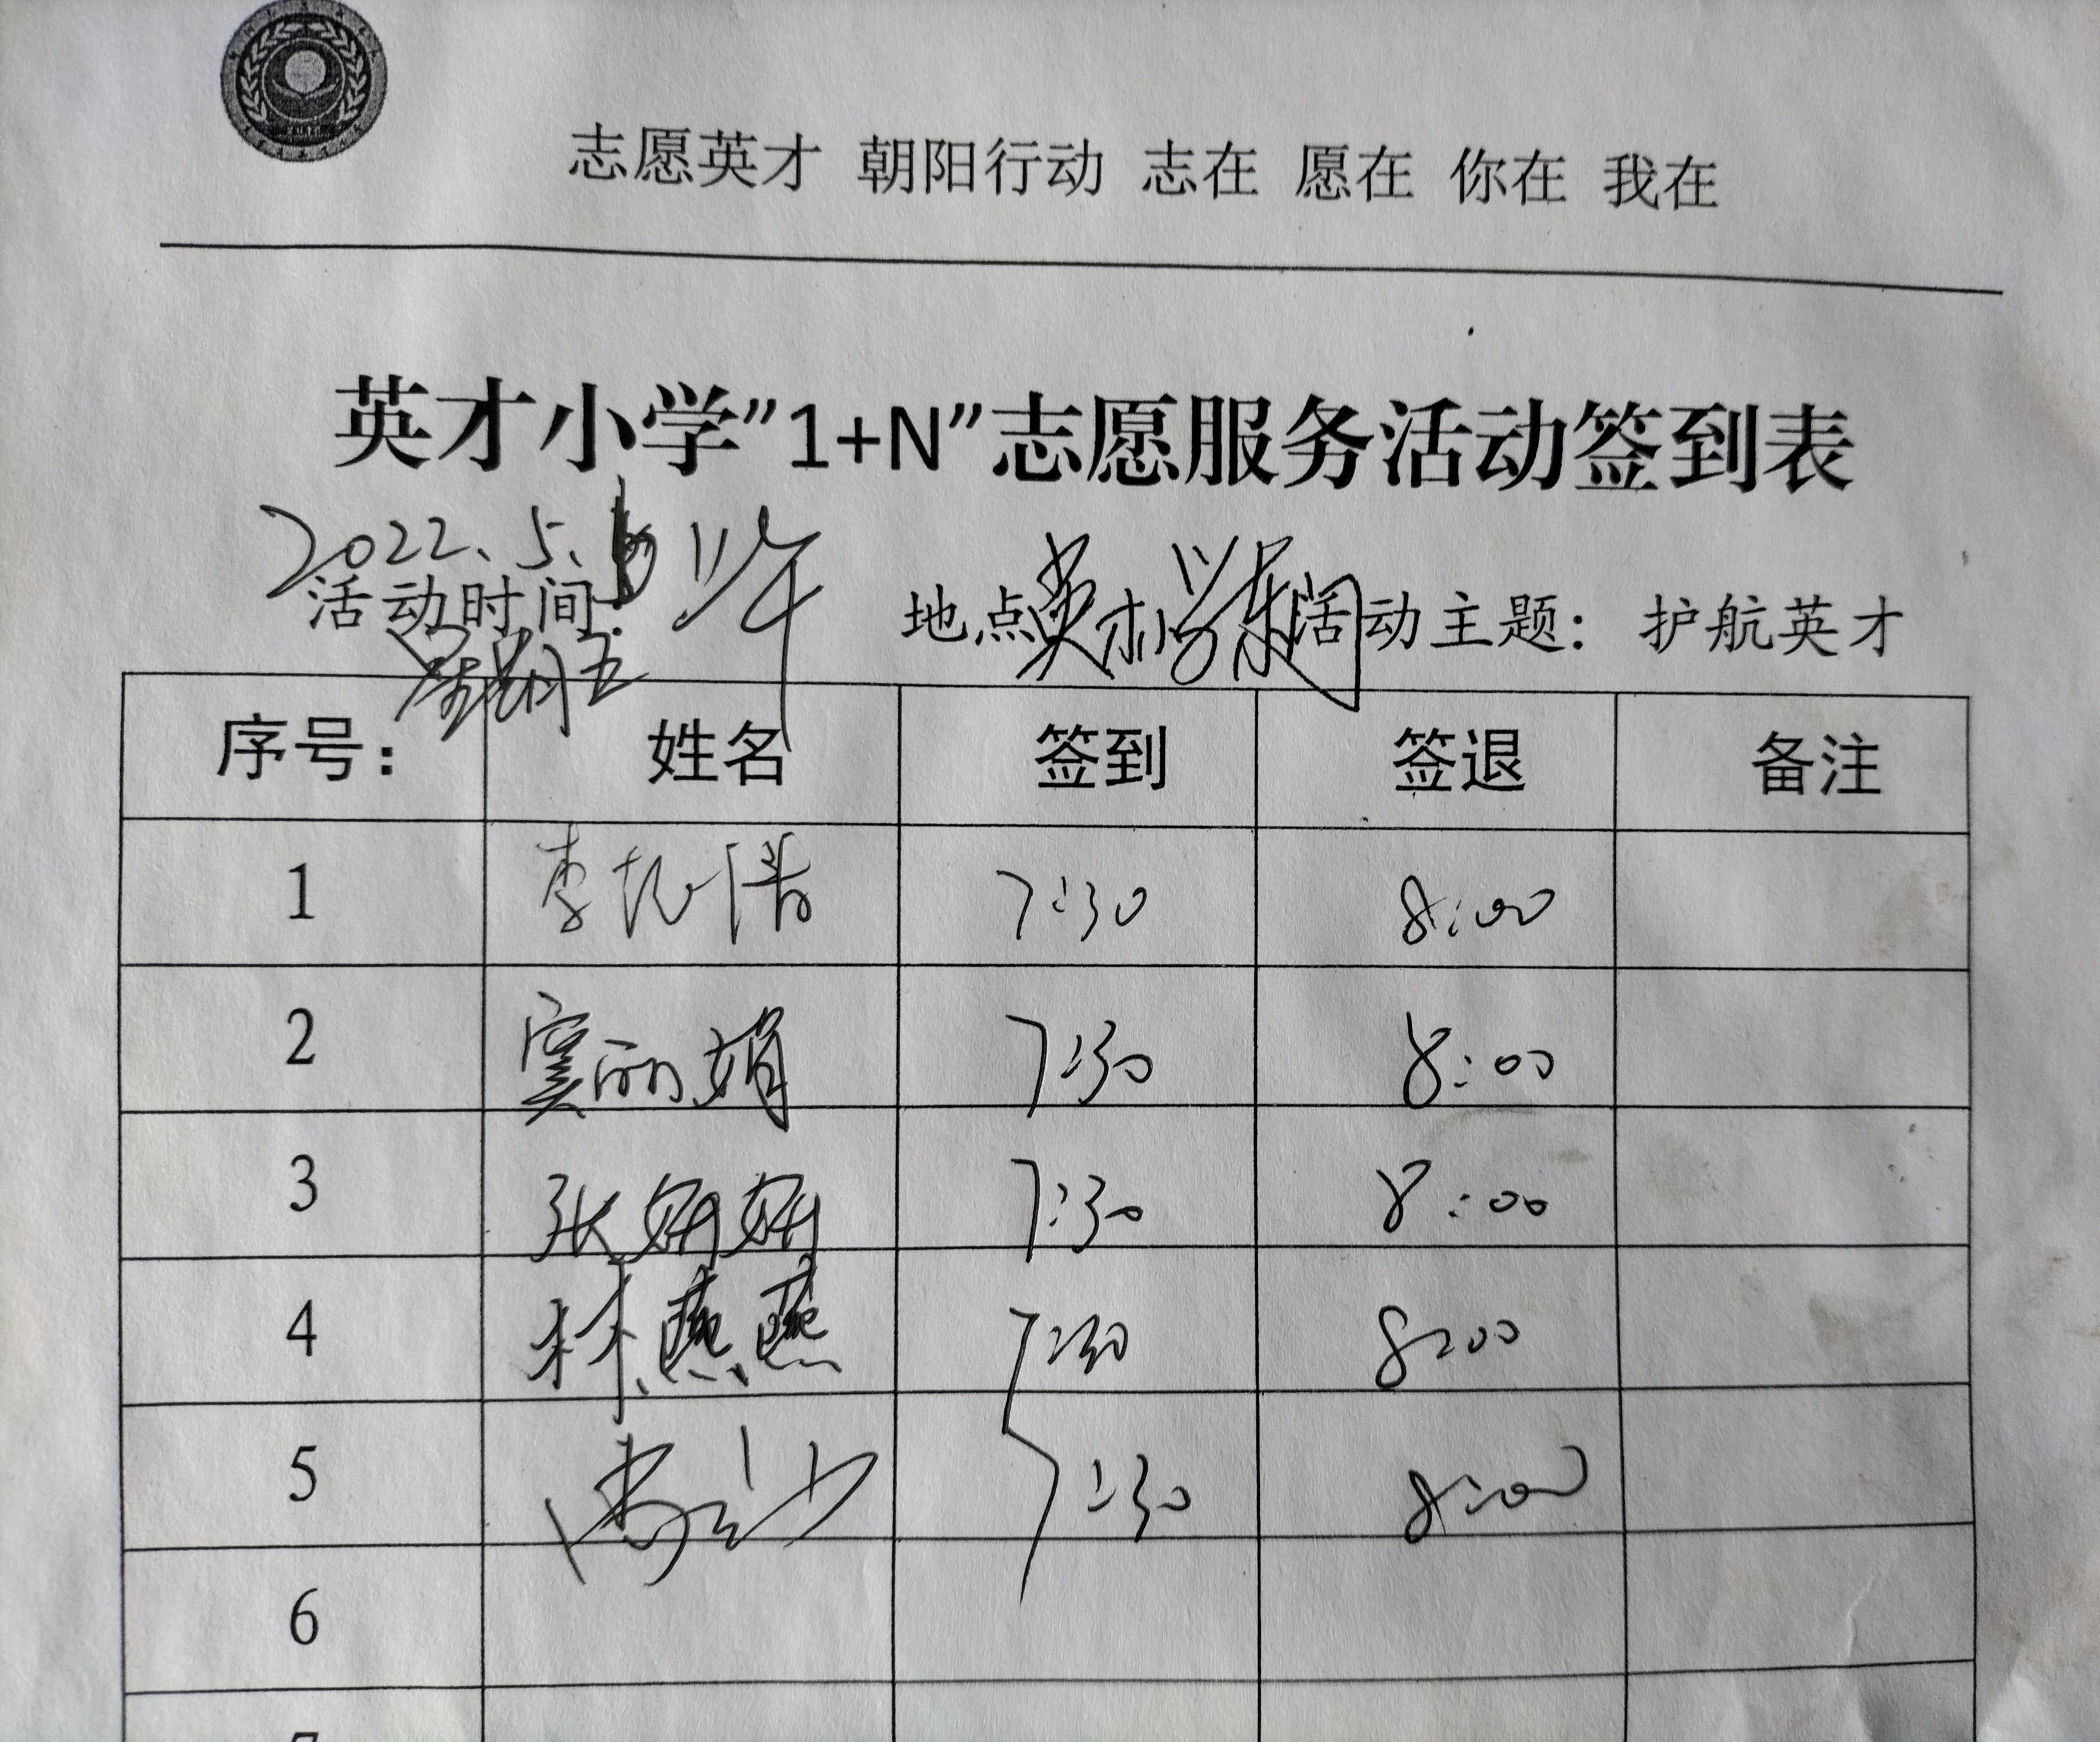 志愿英才 朝阳行动 志在 愿在 你在 我在
英才小学”1+N”志愿服务活动签到表
2022、5、 上午
活动时间: 地点英才小学东门活动主题：护航英才
星期五
序号： 姓名 签到 签退 备注
1 李 7:30 8:00
2 窦丽娟 7:30 8:00
3 张妍妍 7:30 8:00
4 林燕燕 7:30 8:00
5 7:30 8:00
6